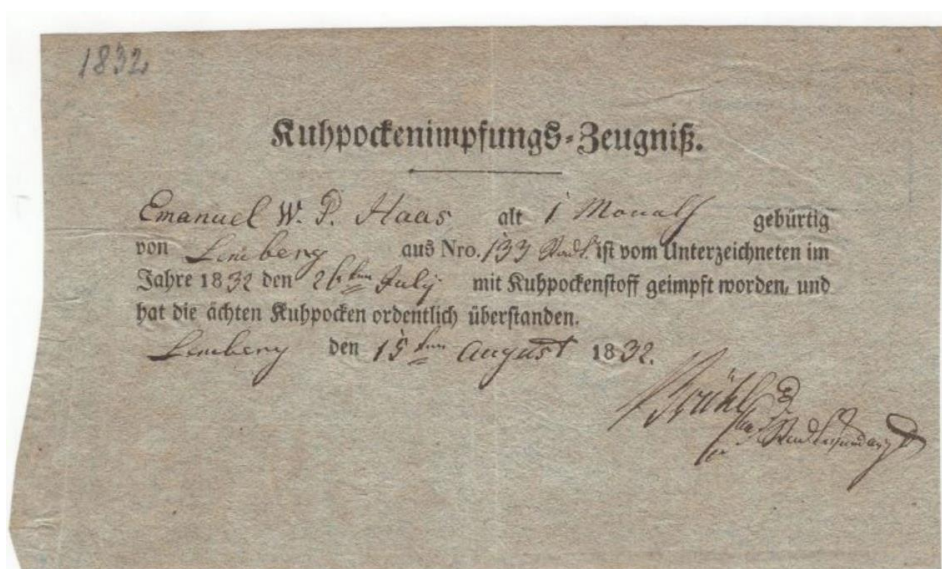 1832
Kuhpockenimpfungs-Zeugniß.
Emanuel W. P. Haas alt 1 Monath gebürtig
von Lemberg aus Nro. 133 Stadt ist vom Unterzeichneten im
Jahre 1832 den 26ten July mit Kuhpockenstoff geimpft worden, und
hat die ächten Kuhpocken ordentlich überstanden.
Lemberg den 15ten August 1832.